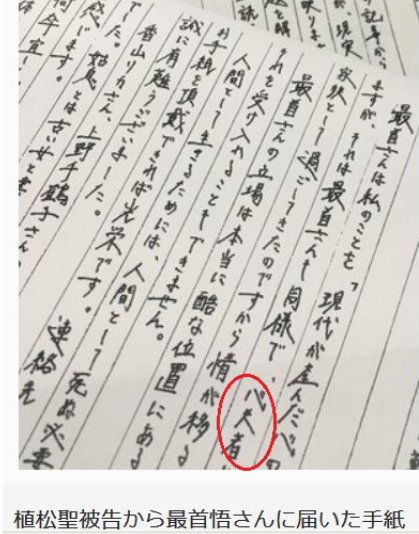 最首さんは私のことを「現代が産んだ心の
ますが、それは最首さんも同様で、心失者
家族として過ごしてきたのですから情が移る
最首さんの立場は本当に酷な位置にある
それを受け入れることもできません。
人間として生きるためには、人間として死ぬ必要
お手紙を頂戴できれば光栄です。連絡先
誠に有難うございました。
香山リカさん、上野千鶴子さん、
でした。姑息とは古い女と
感じます。
何卒宜し
植松聖被告から最首悟さんに届いた手紙